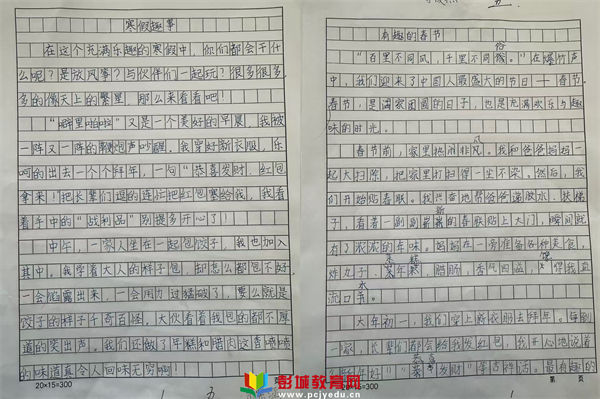 寒假趣事
在这个充满乐趣的寒假中,你们都会干什
么呢?是放风筝?与伙伴们一起玩?很多很
多的像天上的繁星,那么来看看吧!
“噼里啪啦”又是一个美好的早晨,我被
一阵又一阵的鞭炮声吵醒,我穿好新衣服,乐
呵的出去一个个拜年,一句“恭喜发财,红包
拿来!把长辈们逗的连忙把红包塞给我,我看
着手中的“战利品”别提多开心了!
中午,一家人坐在一起包饺子,我也加入
其中。我学着大人的样子包,却怎么都包不好
一会馅露出来,一会用力过猛破了,要么就是
饺子的样子千奇百怪,大伙看着我包的都不厚
道的笑出声。我们还做了年糕和腊肉这香喷喷
的味道真令人回味无穷啊!
20×15=300
有趣的春节
“百里不同风,千里不同俗。”在爆竹声
中,我们迎来了中国人最盛大的节日——春节。
春节,是阖家团圆的日子,也是充满欢乐与趣
味的时光。
春节前,家里热闹非凡。我和爸爸妈妈一
起大扫除,把家里打扫得一尘不染。然后,我
们开始贴春联。我兴奋地帮爸爸递胶水、扶梯
子,看着一副副崭新的春联贴上大门,瞬间就
有了浓浓的年味。妈妈在一旁准备各种美食,
炸丸子、蒸年糕,腊肠,香气四溢,馋得我直
流口水。
大年初一,我们穿上新衣服去拜年。每到
一家,长辈们都会给我发红包,我开心地说着
“恭喜发财”等吉祥话。最有趣的
×15=300
第 页
彭城教育网
www.pcjyedu.cn